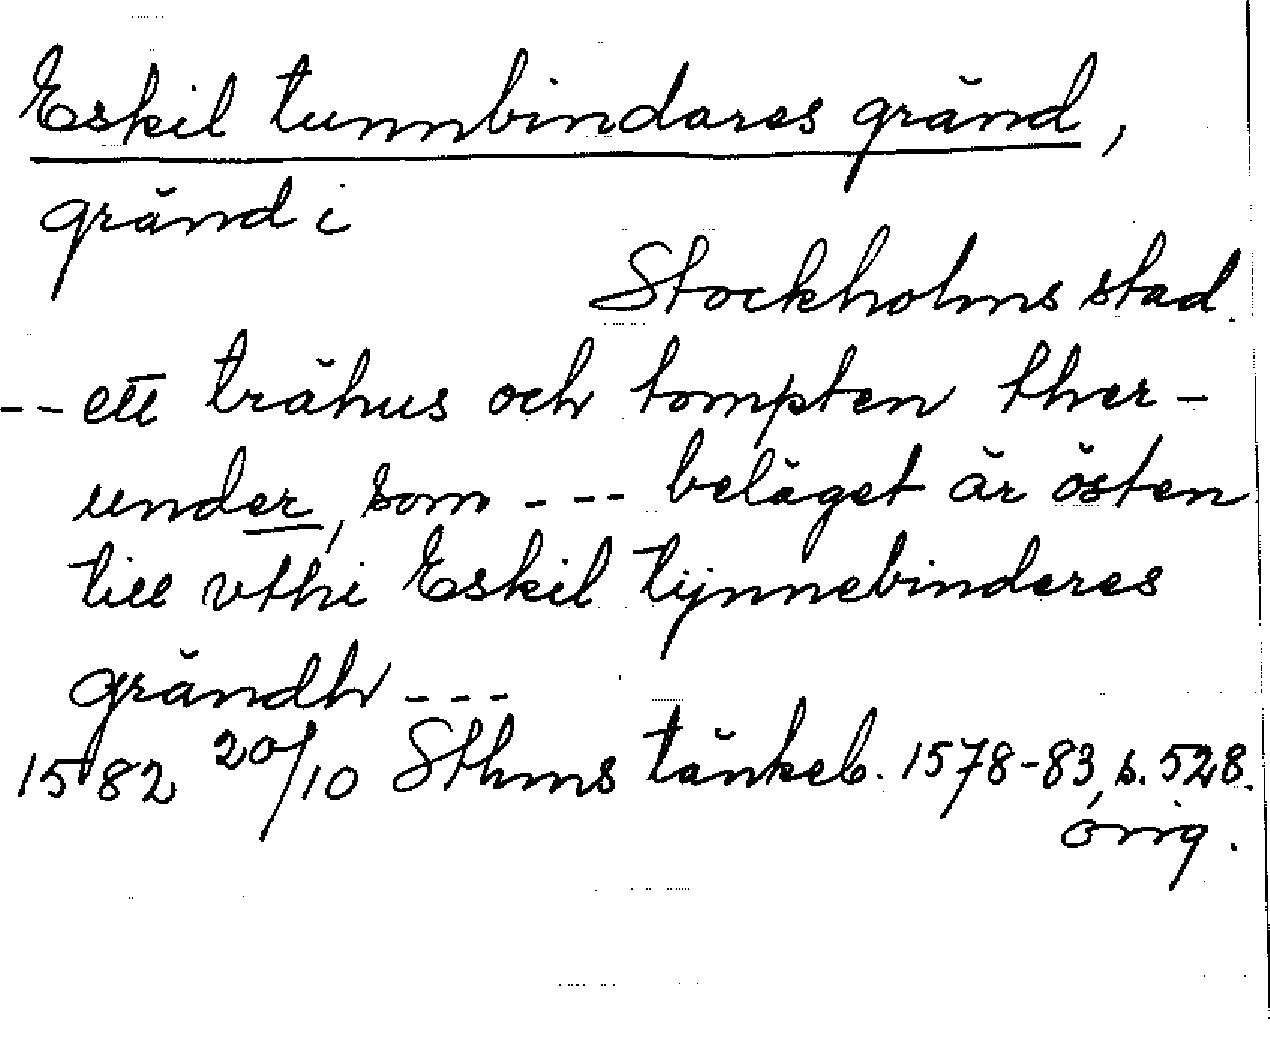 Eskil tunnbindares gränd,
gränd i
Stockholms stad.
-- ett trähus och tompten ther-
under, som --- beläget är östen
till vthi Eskil tÿnnebinderes
grändh ---
1582 20/10 Sthms tänkeb. 1578-83, s. 528.
orig.